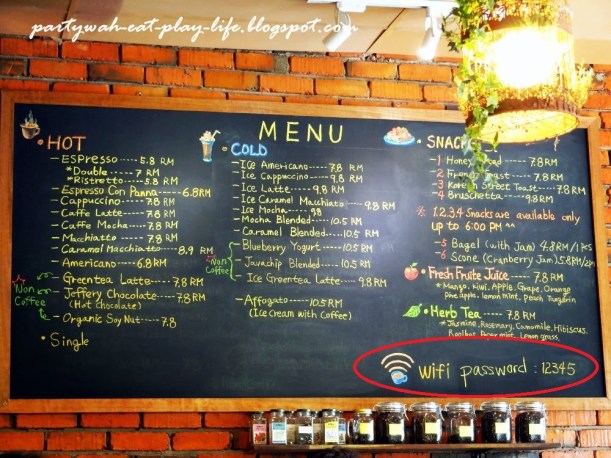 partywah-eat-play-life.blogspot.com
MENU
HOT
- ESPRESSO ----- 5.8 RM
*Double ----- 7 RM
*Ristretto ---- 5.8 RM
- Espresso Con Panna -- 6.8 RM
- Cappuccino ---- 7.8 RM
- Caffe Latte ---- 7.8 RM
- Caffe Mocha ---- 7.8 RM
- Macchiatto --- 7.8 RM
- Caramel Macchiatto --- 8.9 RM
- Americano ---- 6.8 RM
Non Coffee
- Greentea Latte ---- 7.8 RM
- Jeffery Chocolate --- 7.8 RM
(Hot Chocolate)
- Organic Soy Nut -- 7.8
Single
COLD
- Ice Americano ---- 7.8 RM
- Ice Cappuccino --- 9.8 RM
- Ice Latte ---- 9.8 RM
- Ice Caramel Macchiato --- 9.8 RM
- Ice Mocha ---- 9.8
- Mocha Blended ---- 10.5 RM
- Caramel Blended --- 10.5 RM
Non Coffee
- Blueberry Yogurt --- 10.5 RM
- Javachip Blended --- 10.5 RM
- Ice Greentea Latte --- 9.8 RM
- Affogato ---- 10.5 RM
(Ice Cream with Coffee)
SNACKS
-1 Honey 7.8 RM
-2 7.8 RM
-3 Street Toast --- 7.8 RM
-4 Bruschetta ---- 9.8 RM
※ 1.2.3.4 Snacks are available only
up to 6:00 PM ^^
-5 Bagel (with Jam) 4.8 RM/1 PCS
-6 Scone (Cranberry Jam) 5.8 RM/2
Fresh Fruite Juice ---- 7.8 RM
* Mango, Kiwi, Apple, Grape, Orange
pine apple, lemon mint, peach
Herb Tea ---- 7.8 RM
* Jasmine, Rosemary, Camomile, Hibiscus,
Lemon grass.
wifi password : 12345